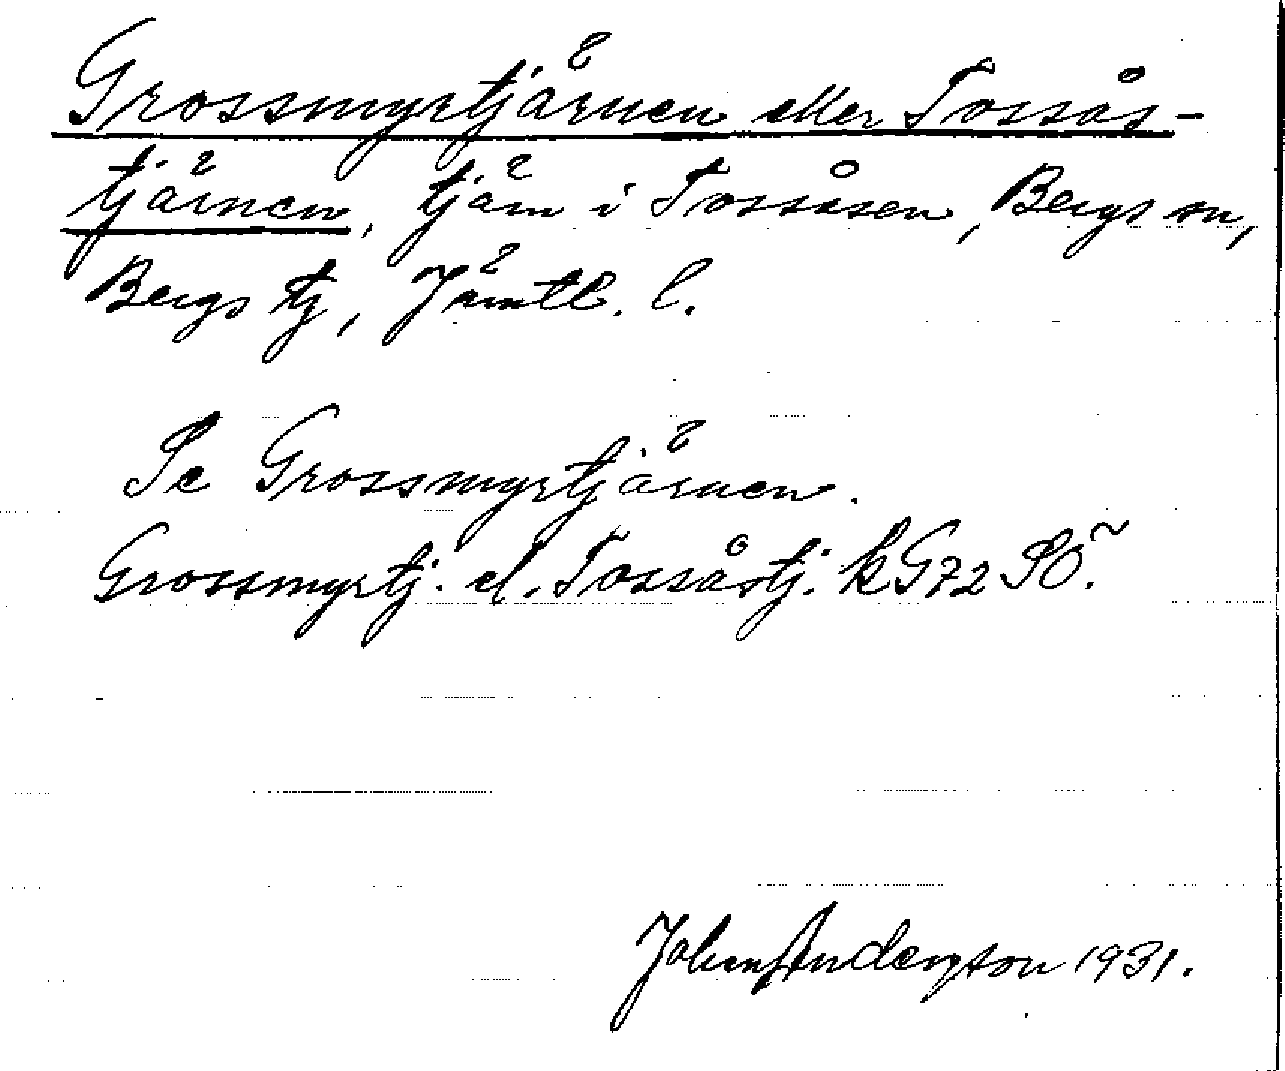 Grossmyrtjärnen eller Tossås-
tjärnen, tjärn i Tossåsen, Bergs sn,
Bergs tg, Jämtl. l.
Se Grossmyrtjärnen.
Grossmyrtj. el. Tossåstj. k G72 SÖ.
John Anderzson 1931.